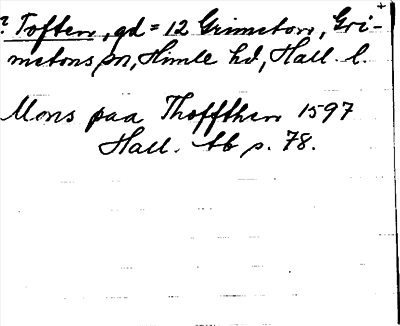 ? Toften, gd = 12 Grimeton, Gri-
metons sn, Himle hd, Hall. l.
Mons paa Thoffthen 1597
Hall. tb s. 78.